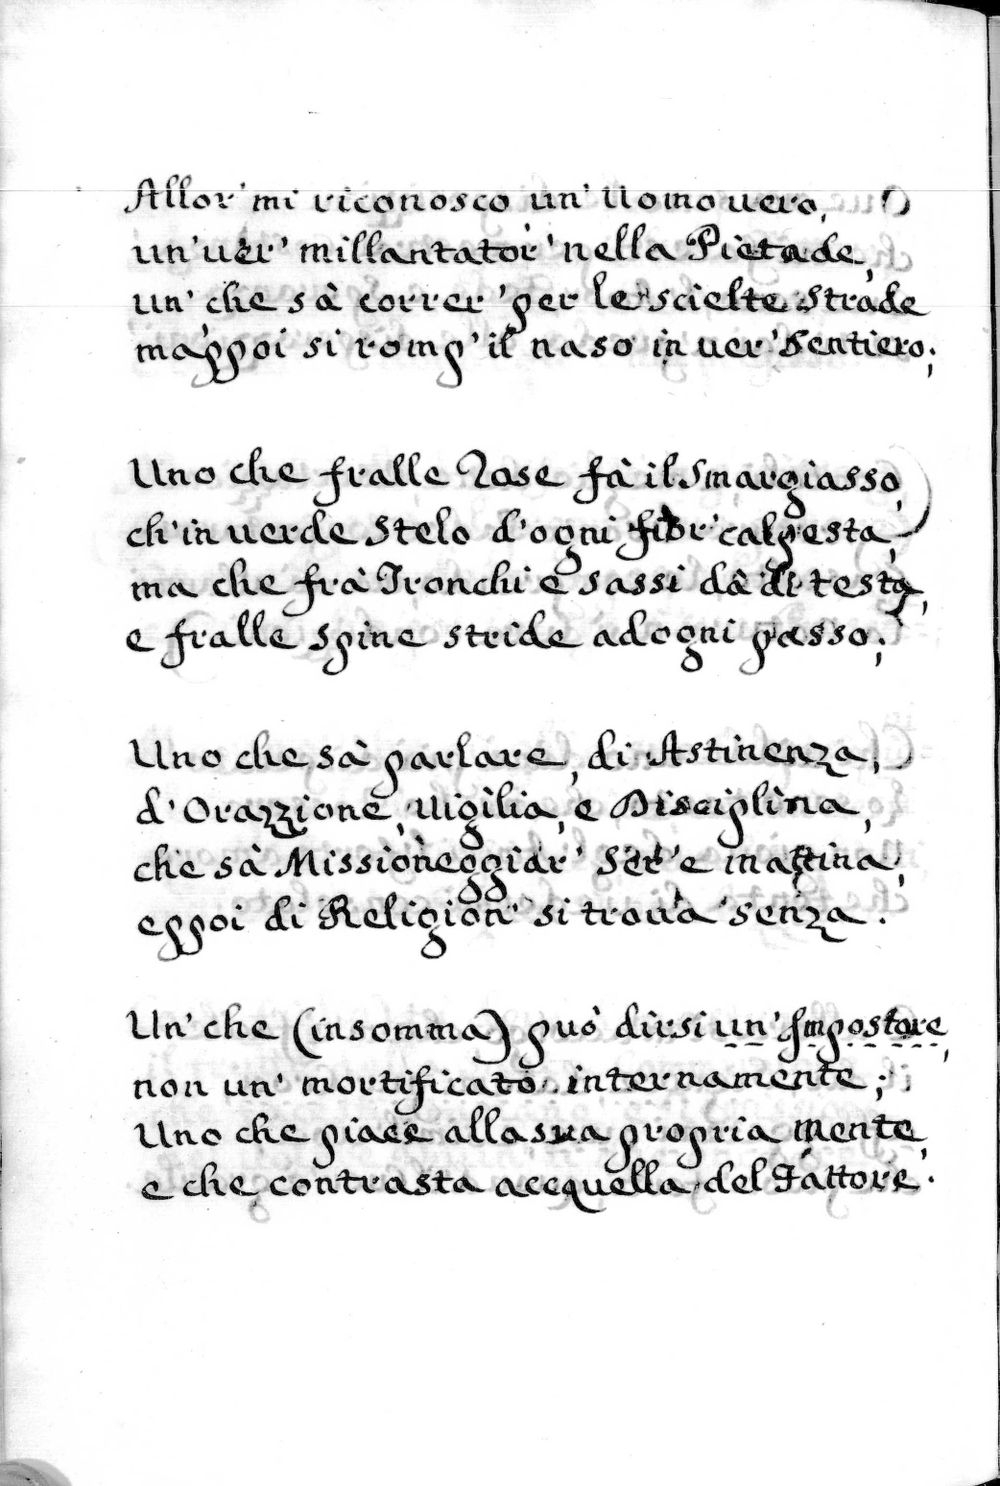 Allor' mi riconosco un' Uomo vero,
un' ver' millantator' nella Pietade,
un' che sà correr' per le scielte strade
mappoi si romp' il naso in ver' Sentiero;
Uno che fralle Rose fà il Smargiasso,
ch' in verde Stelo d' ogni fior' calpesta,
ma che frà Tronchi e sassi dà di testa,
e fralle Spine stride ad ogni passo;
Uno che sà parlare, di Astinenza,
d' Orazzione, Vigilia, e Disciplina,
che sà Missioneggiar' Ser' e mattina,
eppoi di Religion' si trova senza.
Un' che (insomma) può dirsi un' Impostore,
non un' mortificato internamente;
Uno che piace alla sua propria mente,
e che contrasta accquella del Fattore.